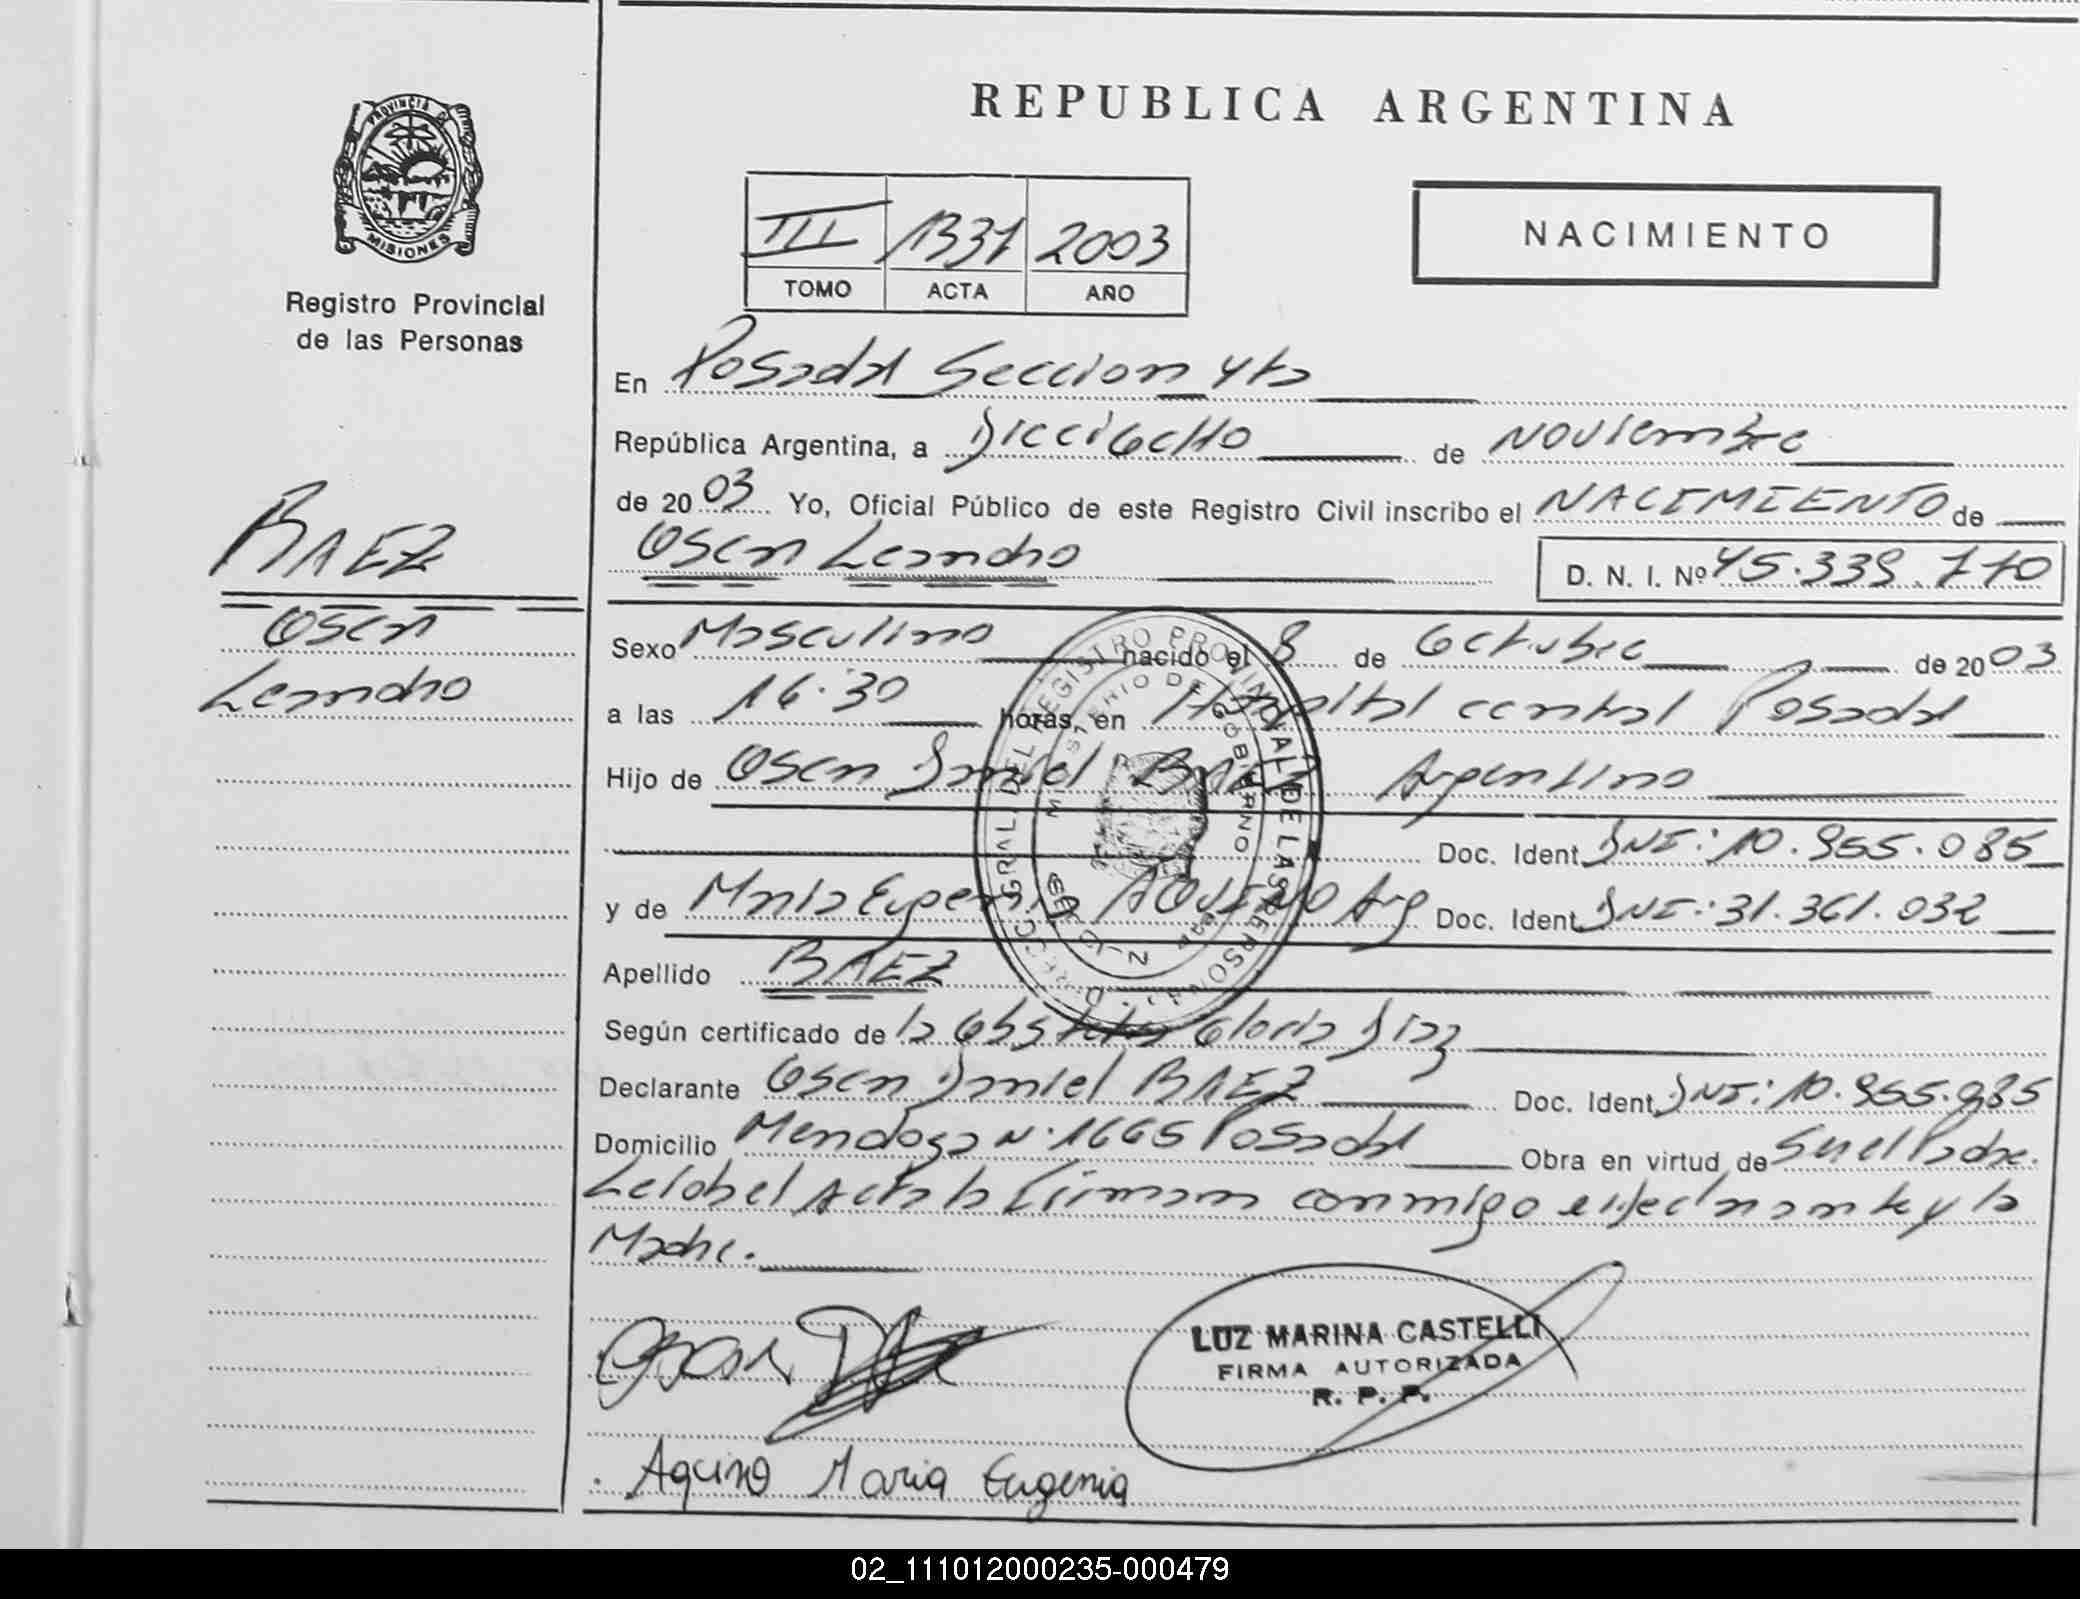 PROVINCIA DE
MISIONES
Registro Provincial
de las Personas
BAEZ
Oscar
Leandro
REPUBLICA ARGENTINA
III 1337 2003
TOMO ACTA AÑO
NACIMIENTO
En Posadas Seccion 4ta
República Argentina, a Dieciocho de Noviembre
de 2003 Yo, Oficial Público de este Registro Civil inscribo el NACIMIENTO de
Oscar Leandro D. N. I. Nº 45.339.770
Sexo Masculino nacido el 8 de Octubre de 2003
a las 16.30 horas, en Hospital central Posadas
Hijo de Oscar Daniel BAEZ Argentino
Doc. Ident. DNI: 10.955.085
y de Maria Eugenia AQUINO Arg Doc. Ident. DNI: 31.361.032
Apellido BAEZ
Según certificado de la Obstetra Gloria Diaz
Declarante Oscar Daniel BAEZ Doc. Ident. DNI: 10.955.985
Domicilio Mendoza N. 1665 Posadas Obra en virtud de Ser el Padre.
Leida el Acta la Firman conmigo el Declarante y la
Madre.
LUZ MARINA CASTELLI
FIRMA AUTORIZADA
R. P. P.
Aquino Maria Eugenia
02_111012000235-000479